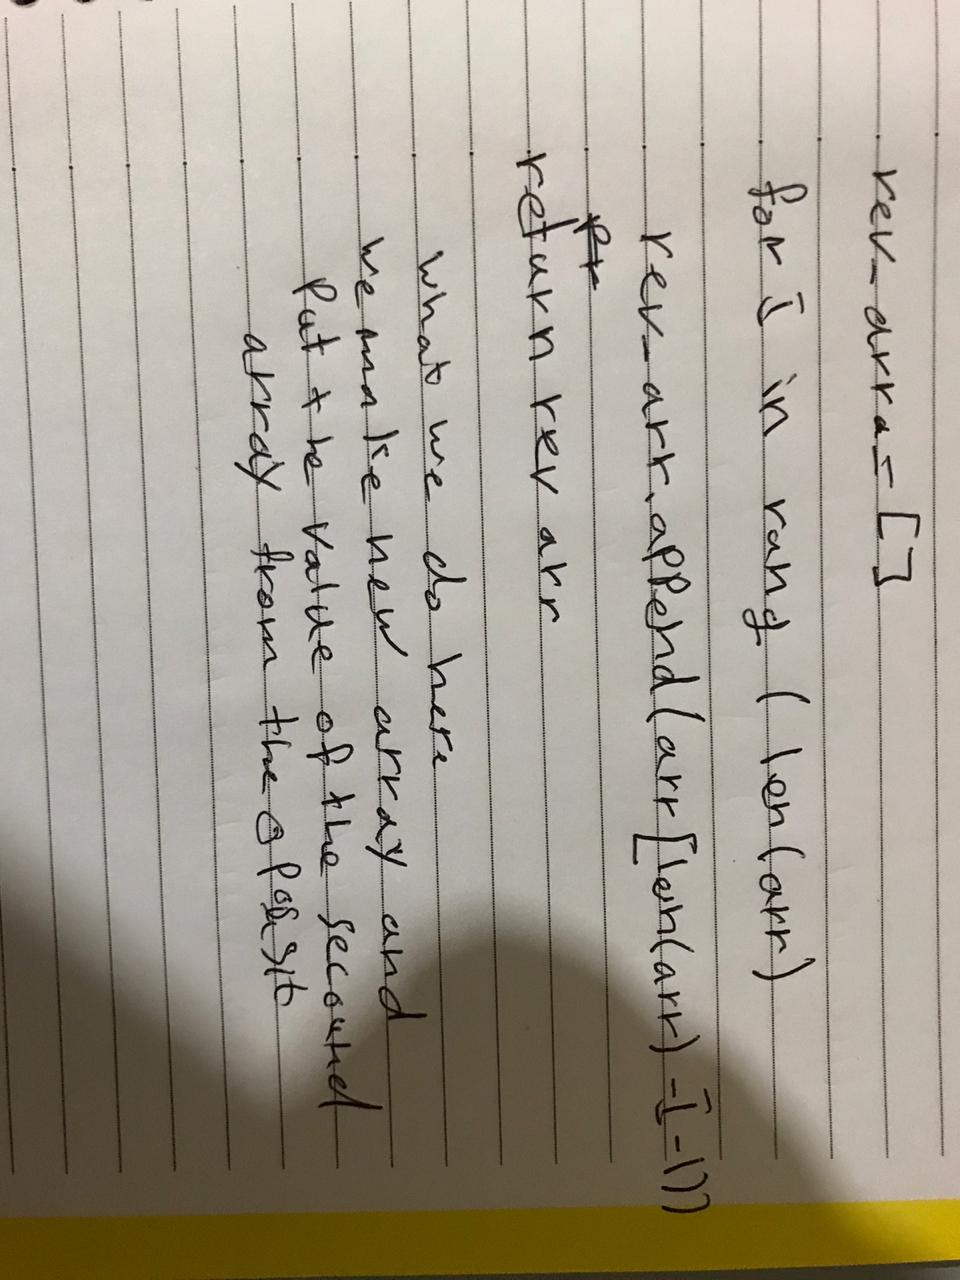 rev_arra=[]
for i in rang (len(arr)
rev_arr.append(arr[len(arr)-i-1))
return rev arr
what we do here
we make new array and
Put the value of the second
array from the oposit